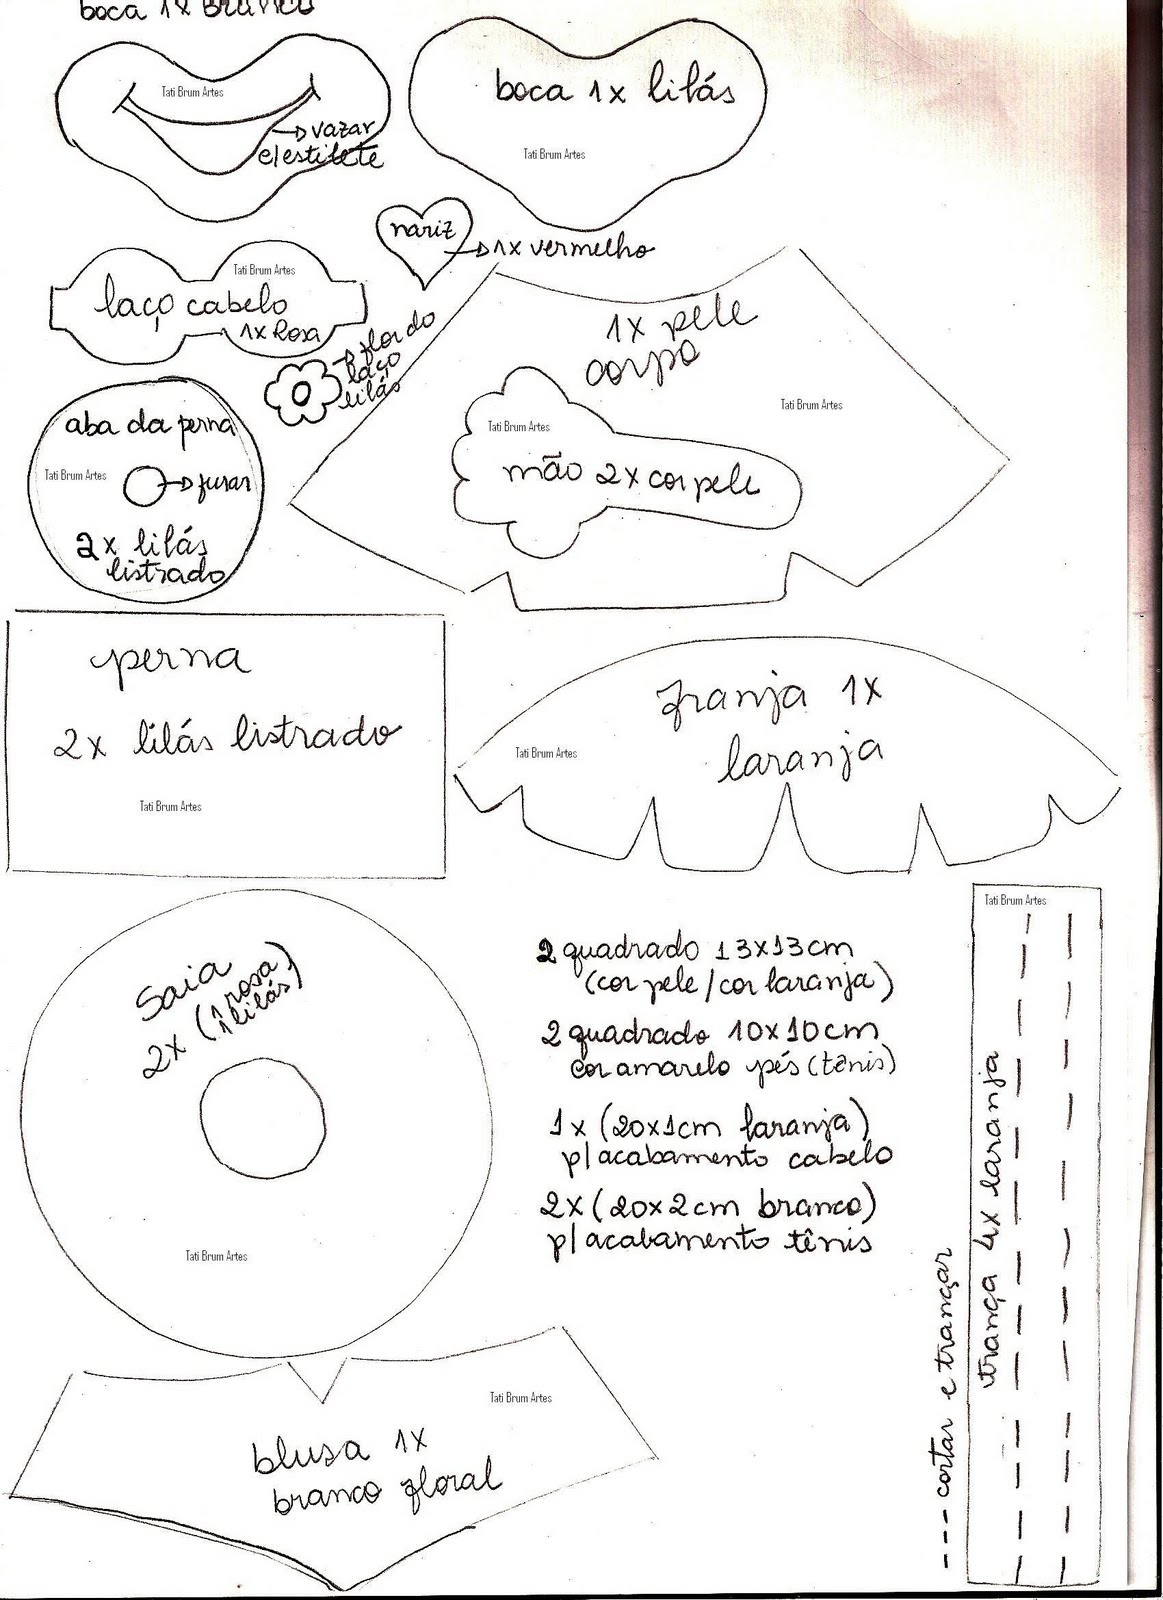 boca 1x Branco
Tati Brum Artes
→ vazar
c/estilete
boca 1x lilás
Tati Brum Artes
nariz
→ 1x vermelho
Tati Brum Artes
laço cabelo
1x Rosa
→ flor do
laço
lilás
1x pele
corpo
Tati Brum Artes
Tati Brum Artes
mão 2x cor pele
aba da perna
Tati Brum Artes
→ furar
2x lilás
listrado
perna
2x lilás listrado
Tati Brum Artes
franja 1x
laranja
Tati Brum Artes
Saia
2x (1 rosa
1 lilás)
Tati Brum Artes
2 quadrado 13x13cm
(cor pele / cor laranja)
2 quadrado 10x10cm
cor amarelo pés (tênis)
1x (20x1cm laranja)
p/ acabamento cabelo
2x (20x2cm branco)
p/ acabamento tênis
Tati Brum Artes
trança 4x laranja
--- cortar e trançar
Tati Brum Artes
blusa 1x
branco floral